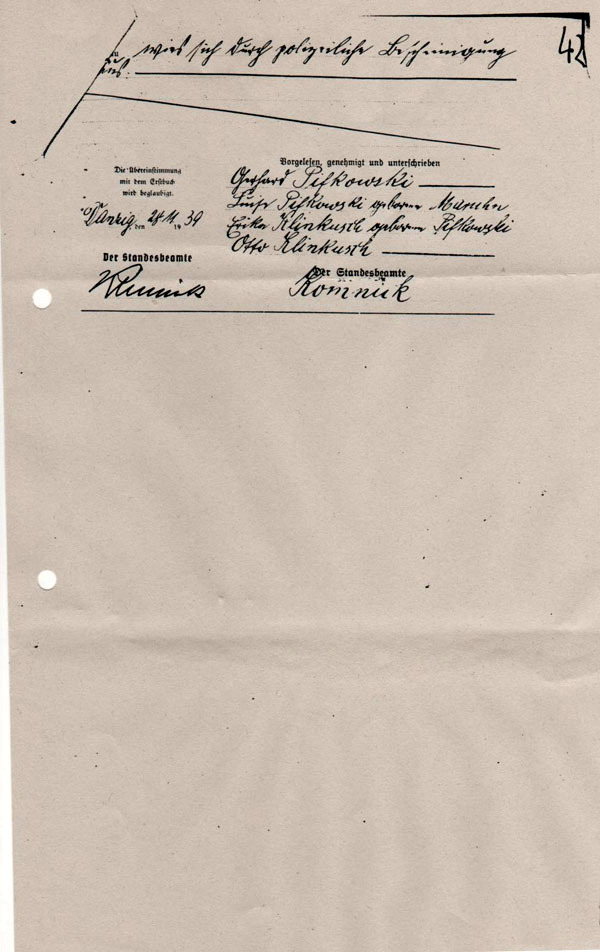 wies sich durch polizeiliche Bescheinigung
aus.
Die Übereinstimmung
mit dem Erstbuch
wird beglaubigt.
Danzig, den 28. 11. 1939
Der Standesbeamte
Vorgelesen, genehmigt und unterschrieben
Gerhard Pifkowski
Pifkowski geborene Maruhn
Erika Klinkusch geborene Pifkowski
Otto Klinkusch
Der Standesbeamte
Komnick